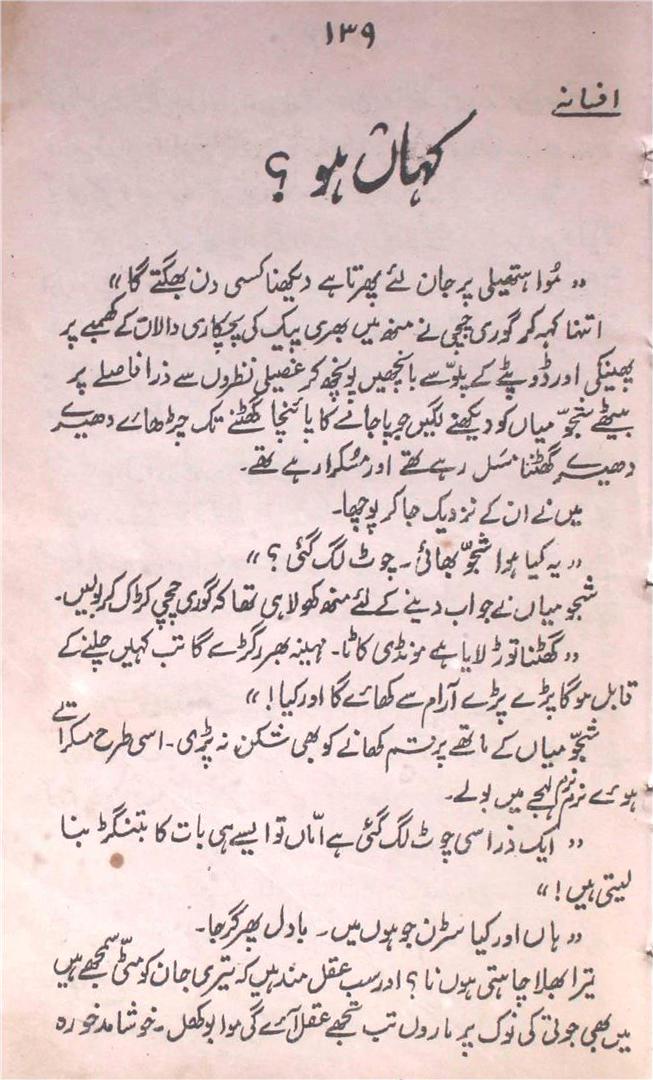 ۱۳۹
افسانے
کہاں ہو ؟
" مُوا ہتھیلی پر جان لئے پھرتا ہے دیکھنا کسی دن بھگتے گا "
اتنا کہہ کر گوری چچی نے منھ میں بھری پیک کی پچکاری دالان کے کھمبے پر
پھینکی اور ڈوپٹے کے پلوّ سے بانچھیں پونچھ کر غصیلی نظروں سے ذرا فاصلے پر
بیٹھے شجوّ میاں کو دیکھنے لگیں جو پاجامے کا پائنچا گھٹنے تک چڑھائے دھیرے
دھیرے گھٹنا مَسل رہے تھے اور مُسکرا رہے تھے۔
میں نے ان کے نزدیک جا کر پوچھا۔
" یہ کیا ہوا شجوّ بھائی ۔ چوٹ لگ گئی ؟ "
شجو میاں نے جواب دینے کے لئے منھ کھولا ہی تھا کہ گوری چچی کڑک کر بولیں۔
" گھٹنا توڑ لایا ہے مونڈی کاٹا۔ مہینہ بھر رگڑے گا تب کہیں چلنے کے
قابل ہوگا پڑے پڑے آرام سے کھائے گا اور کیا ! "
شجوّ میاں کے ماتھے پر قسم کھانے کو بھی شکن نہ پڑی ۔ اسی طرح مسکراتے
ہوئے نرم نرم لہجے میں بولے۔
" ایک ذرا سی چوٹ لگ گئی ہے امّاں تو ایسے ہی بات کا بتنگڑ بنا
لیتی ہیں ! "
" ہاں اور کیا سڑن جو ہوں میں ۔ بادل پھر گرجا۔
تیرا بھلا چاہتی ہوں نا ؟ اور سب عقل مند ہیں کہ تیری جان کو مٹّی سمجھے ہیں
میں بھی جوتی کی نوک پر ماروں تب تجھے عقل آئے گی موا بوکھل ۔ خوشامد خورہ